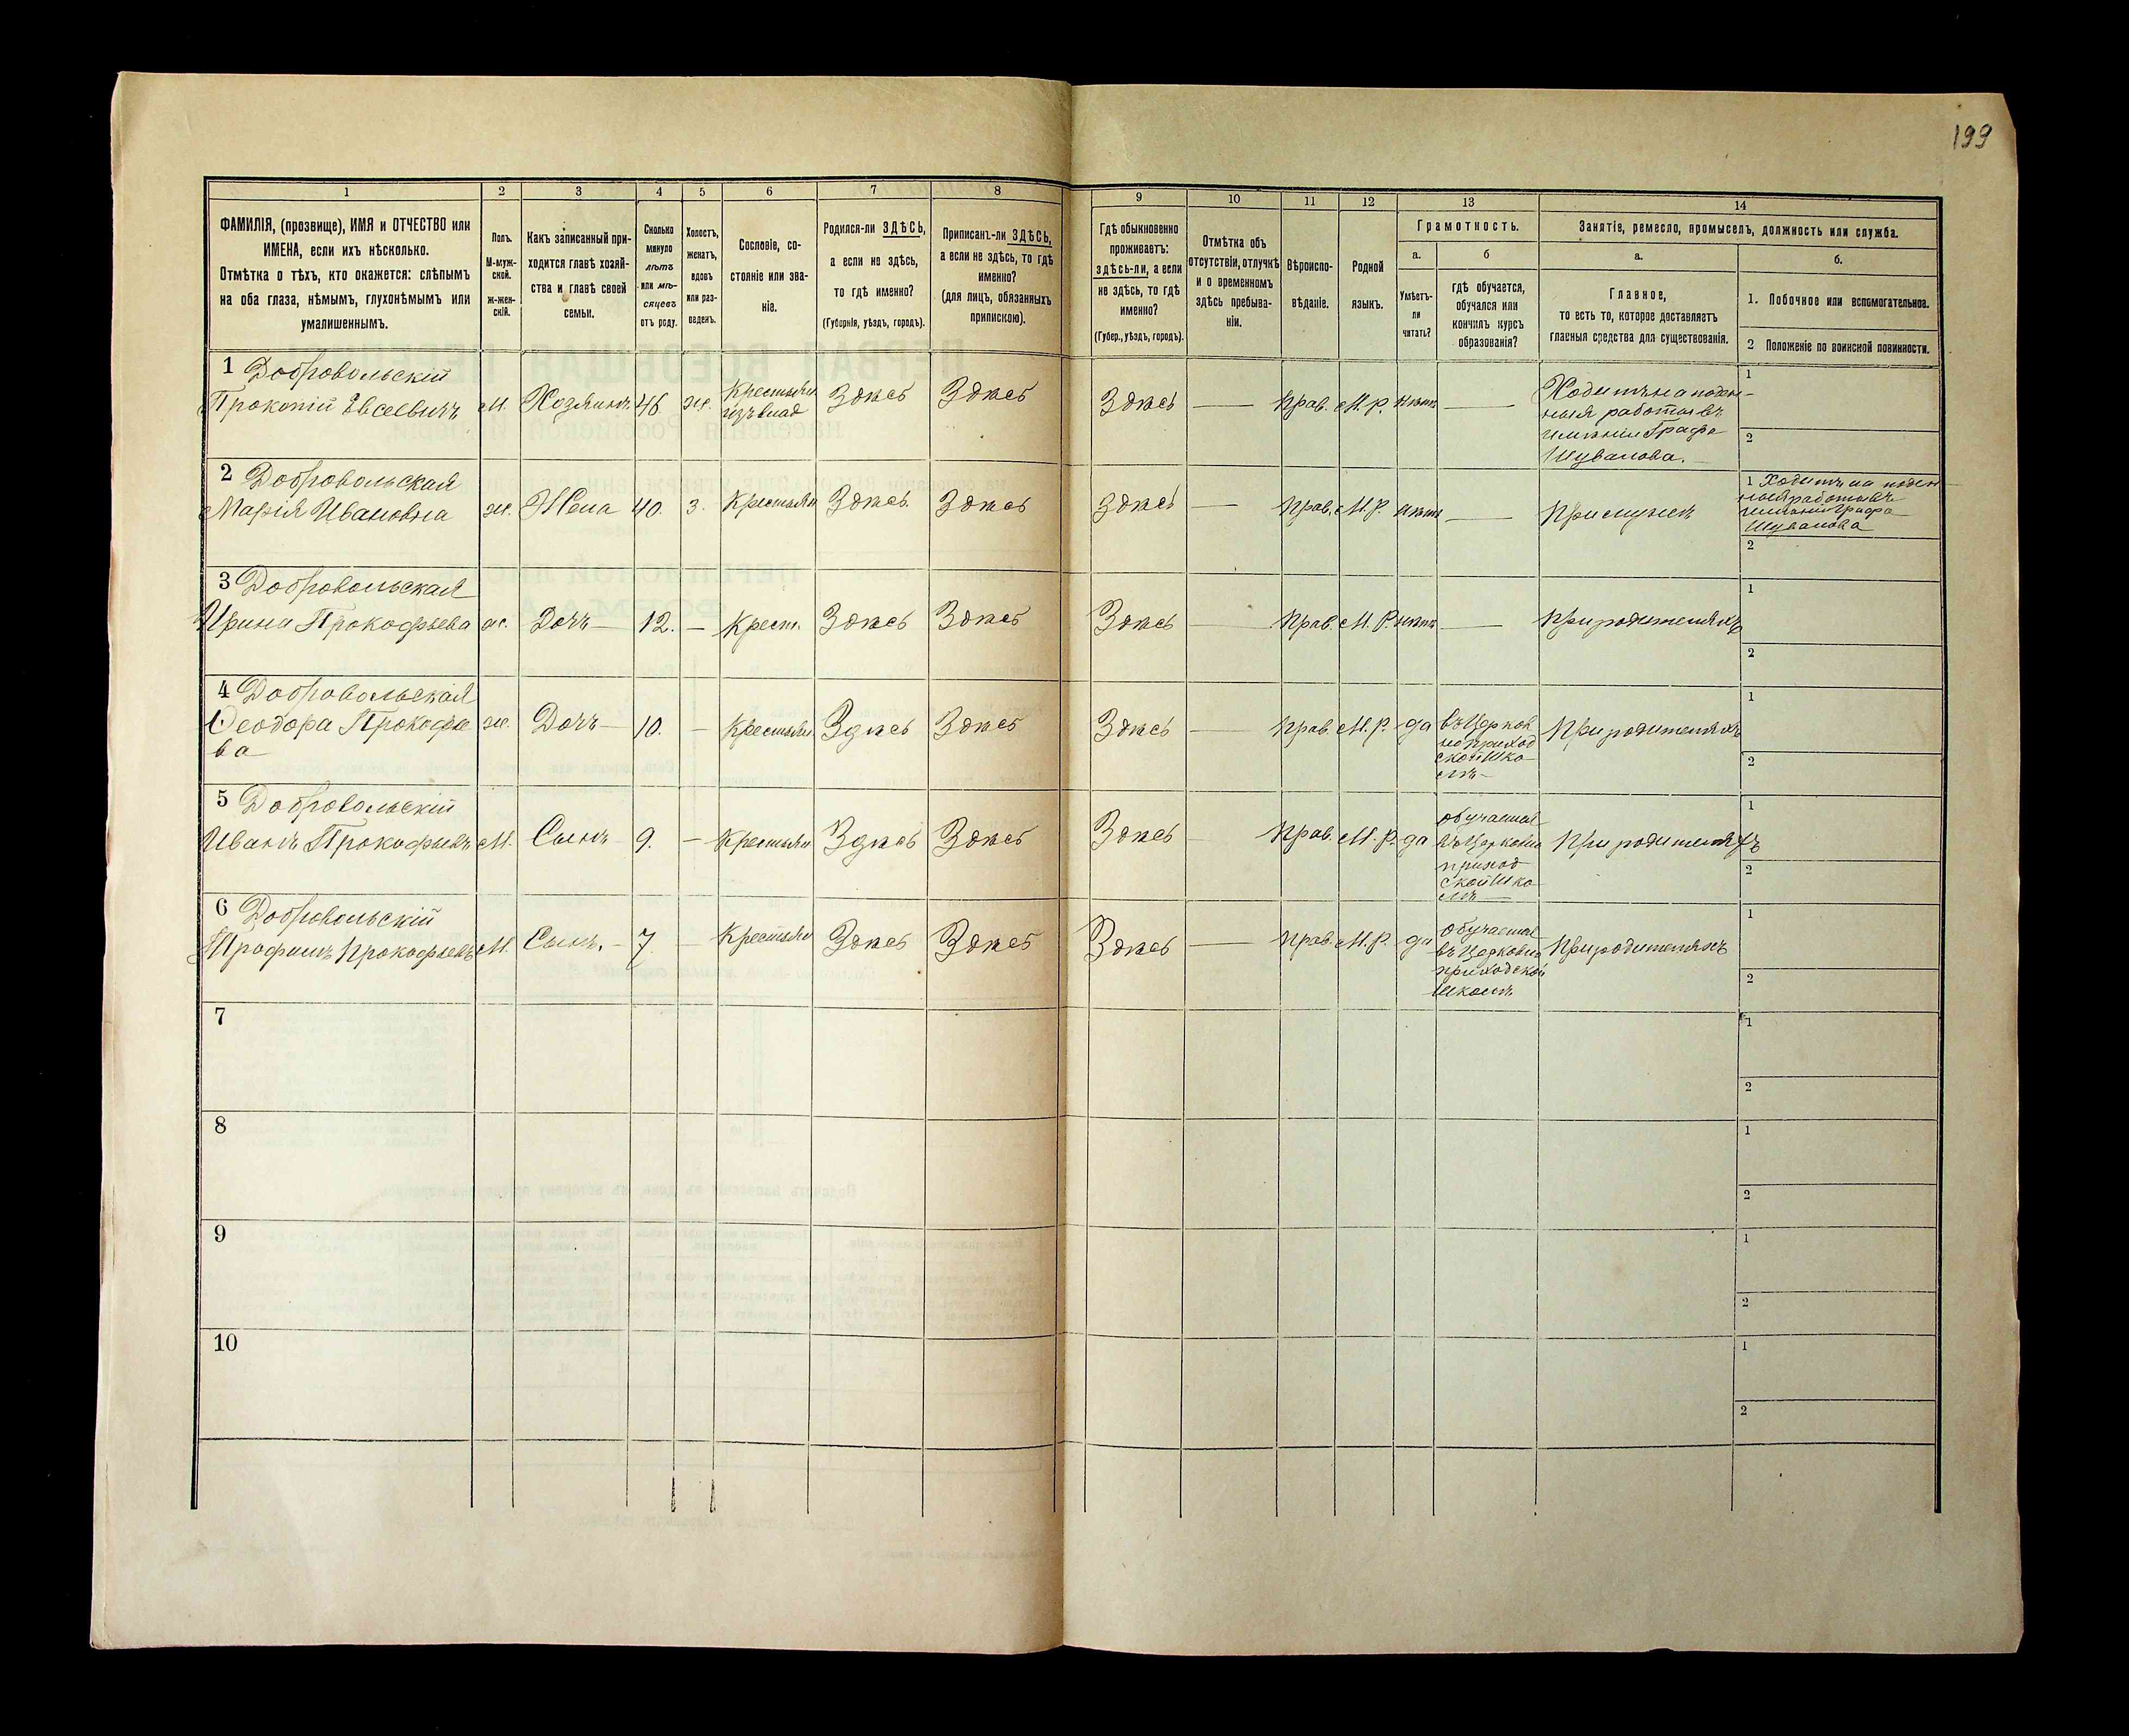 199
1 2 3 4 5 6 7 8 9 10 11 12 13 14
ФАМИЛІЯ, (прозвище), ИМЯ и ОТЧЕСТВО или
ИМЕНА, если ихъ нѣсколько.
Отмѣтка о тѣхъ, кто окажется: слѣпымъ
на оба глаза, нѣмымъ, глухонѣмымъ или
умалишеннымъ.
Полъ.
М-муж-
ской.
ж-жен-
скій.
Какъ записанный при-
ходится главѣ хозяй-
ства и главѣ своей
семьи.
Сколько
минуло
лѣтъ
или мѣ-
сяцевъ
отъ роду.
Холостъ,
женатъ,
вдовъ
или раз-
веденъ.
Сословіе, со-
стояніе или зва-
ніе.
Родился-ли ЗДѢСЬ,
а если не здѣсь,
то гдѣ именно?
(Губернія, уѣздъ, городъ).
Приписанъ-ли ЗДѢСЬ,
а если не здѣсь, то гдѣ
именно?
(для лицъ, обязанныхъ
припискою).
Гдѣ обыкновенно
проживаетъ:
здѣсь-ли, а если
не здѣсь, то гдѣ
именно?
(Губер., уѣздъ, городъ).
Отмѣтка объ
отсутствіи, отлучкѣ
и о временномъ
здѣсь пребыва-
ніи.
Вѣроиспо-
вѣданіе.
Родной
языкъ.
Грамотность.
а.
Умѣетъ-
ли
читать?
б
гдѣ обучается,
обучался или
кончилъ курсъ
образованія?
Занятіе, ремесло, промыселъ, должность или служба.
а.
Главное,
то есть то, которое доставляетъ
главныя средства для существованія.
б.
1. Побочное или вспомогательное.
2 Положеніе по воинской повинности.
1 Добровольскій
Прокопій Евсеевичъ м. Хозяинъ. 46. же. Крестьян
изъ влад Здѣсь Здѣсь Здѣсь — прав. М. р. нѣтъ —
Ходитъ на поден-
ныя работы въ
имѣніи Графа
Шувалова.
1
2
2 Добровольская
Марія Ивановна ж. Жена 40. з. Крестьян Здѣсь. Здѣсь Здѣсь — прав. М. р. нѣтъ — При мужѣ
1 Ходитъ на поден-
ныя работы въ
имѣніи Графа
Шувалова
2
3 Добровольская
Ирина Прокофьева ж. Дочь — 12. — Крест. Здѣсь Здѣсь Здѣсь — прав. М. р. нѣтъ — При родителяхъ
1
2
4 Добровольская
Ѳеодора Прокофье
ва ж. Дочь — 10. — Крестьян Здѣсь Здѣсь Здѣсь — прав. М. р. да
въ Церков
но приход
ской Шко-
лѣ —
При родителяхъ
1
2
5 Добровольскій
Иванъ Прокофьевъ М. Сынъ 9. — Крестьян Здѣсь Здѣсь Здѣсь — прав. М. р. да
обучается
въ Церковно
приход
ской Шко
лѣ —
При родителяхъ
1
2
6 Добровольскій
Трофимъ Прокофьевъ М. Сынъ. — 7 — Крестьян Здѣсь Здѣсь Здѣсь — прав. М. р. да
обучается
въ Церковно
приходской
Школѣ
При родителяхъ
1
2
7
1
2
8
1
2
9
1
2
10
1
2